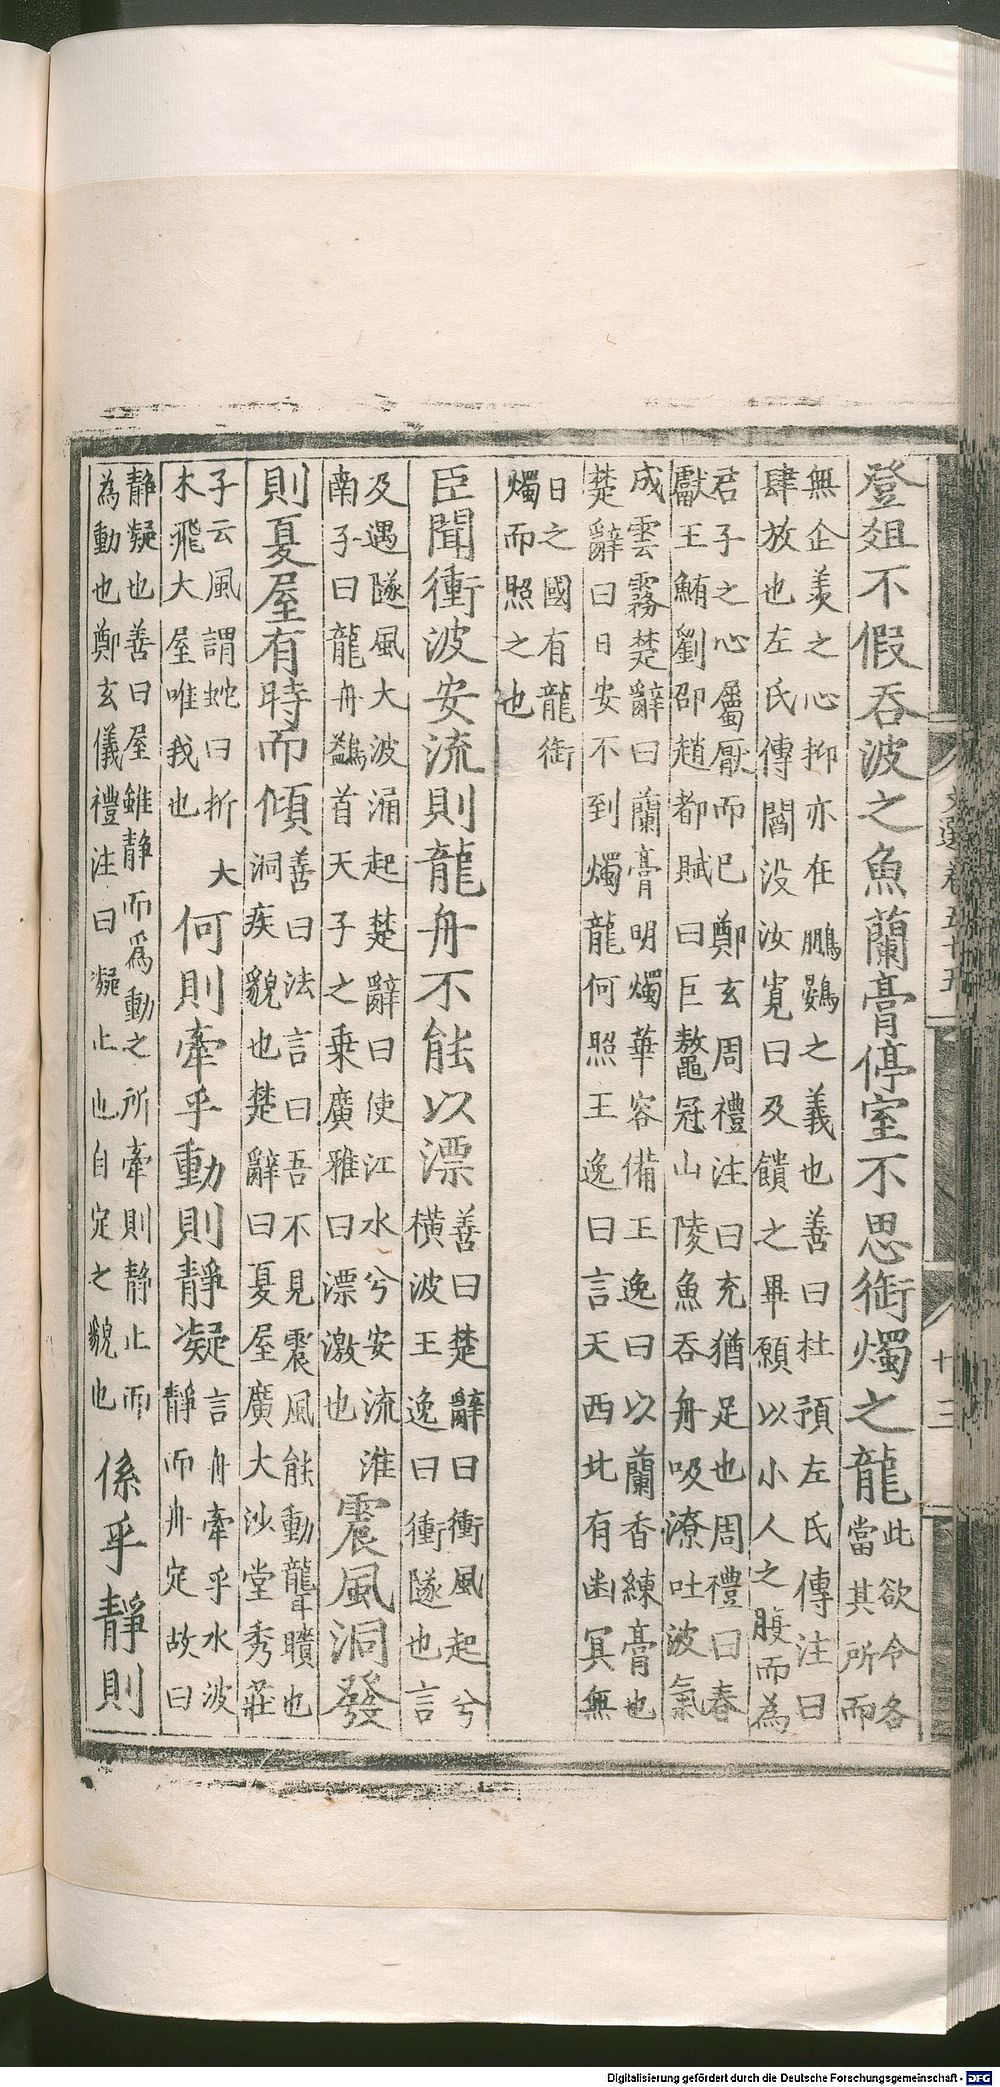 文選卷五十五 十三
登爼不假吞波之魚蘭膏停室不思銜燭之龍
此欲令各
當其所而
無企羨之心抑亦在鵬鷃之義也善曰杜預左氏傳注曰
肆放也左氏傳閻没汝寬曰及饋之畢願以小人之腹而為
君子之心屬厭而已鄭玄周禮注曰充猶足也周禮曰春
獻王鮪劉邵趙都賦曰巨鼇冠山陵魚吞舟吸潦吐波氣
成雲霧楚辭曰蘭膏明燭華容備王逸曰以蘭香練膏也
楚辭曰日安不到燭龍何照王逸曰言天西北有幽冥無
日之國有龍銜
燭而照之也
臣聞衝波安流則龍舟不能以漂
善曰楚辭曰衝風起兮
橫波王逸曰衝隧也言
及遇隧風大波涌起楚辭曰使江水兮安流淮
南子曰龍舟鷁首天子之乗廣雅曰漂激也
震風洞發
則夏屋有時而傾
善曰法言曰吾不見震風能動聾聵也
洞疾貌也楚辭曰夏屋廣大沙堂秀莊
子云風謂蛇曰折大
木飛大屋唯我也
何則牽乎動則靜凝
言舟牽乎水波
靜而舟定故曰
靜凝也善曰屋雖静而爲動之所牽則静止而
為動也鄭玄儀禮注曰凝止也自定之貌也
係乎靜則
Digitalisierung gefördert durch die Deutsche Forschungsgemeinschaft - DFG